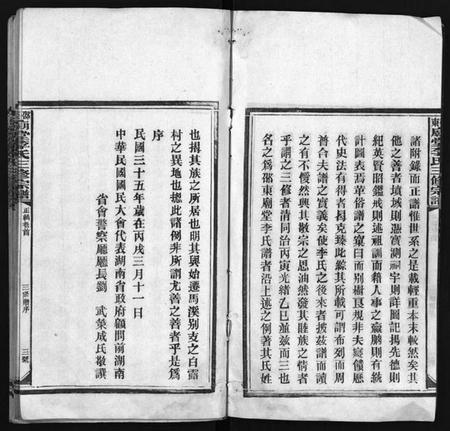 諸附錄而正譜惟世系之是載輕重本末較然矣其
他之善者墳域則憑實測祠宇則詳圖記揭先德則
紀英賢昭鑑戒則述祖訓而藉人事之癥鵬則有統
計圖表焉華俗譜之窠臼而別樹良規非夫庭儀歷
代史法有得者曷克臻此餘其所載可謂布列而周
普合夫譜之實義矣使李氏之後來者披茲譜而讀
之有不慢然興其散宗之恩油然發其睦族之情者
乎謂之三修者清同治丙寅光緒乙巳並茲而三也
名之爲邵東廟堂李氏譜者沿上述之例著其氏姓
也揭其族之所居也明其異始遷馬溪別支之白露
村之異地也總此諸例非所謂尤善之善者乎是爲
序
民國三十五年歲在丙戌三月十一日
中華民國國民大會代表湖南省政府顧問前湖南
省會警察廳廳長劉 武
三修宗譜
正編卷首
三修譜序
三號